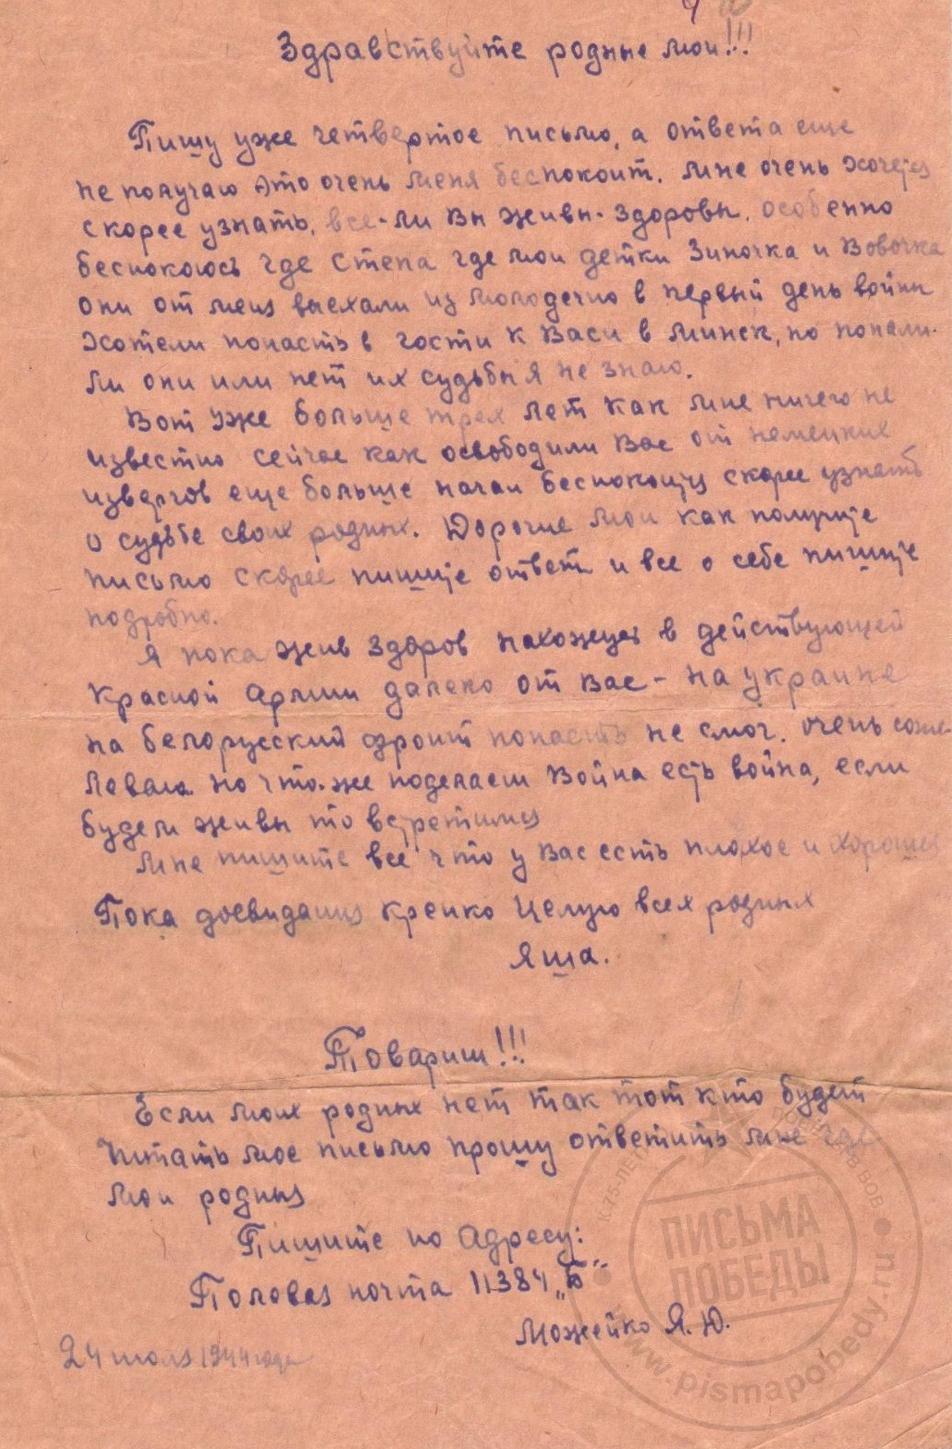 Здравствуйте родные мои!!!
Пишу уже четвертое письмо, а ответа еще
не получаю это очень меня беспокоит. Мне очень хочется
скорее узнать, все-ли Вы живы-здоровы. особенно
беспокоюсь где Степа где мои детки Зиночка и Вовочка
они от меня выехали из Молодечно в первый день войны
Хотели попасть в гости к Васи в Минск, но попали-
ли они или нет их судьбы я не знаю.
Вот уже больше трех лет как мне ничего не
известно сейчас как освободили Вас от немецких
извергов еще больше начал беспокоица скорее узнать
о судьбе своих родных. Дорогие мои как получите
письмо скорее пишите ответ и все о себе пишите
подробно.
Я пока жив здоров нахожусь в действующей
Красной Армии далеко от Вас - на украине
на белорусский фронт попасть не смог. очень сожа-
леваю но что-же поделаеш Война есть война, если
будем живы то встретимся
Мне пишите все что у Вас есть плохое и хорошее
Пока досвидания крепко Целую всех родных
Яша.
Товариш!!!
Если моих родных нет так тот кто будет
Читать мое письмо прошу ответить мне где
мои родные
Пишите по Адресу:
Полевая почта 11384 „Б"
Можейко Я. Ю.
24 июля 1944 года
К 75-ЛЕТИЮ
ВОВ
ПИСЬМА
ПОБЕДЫ
www.pismapobedy.ru